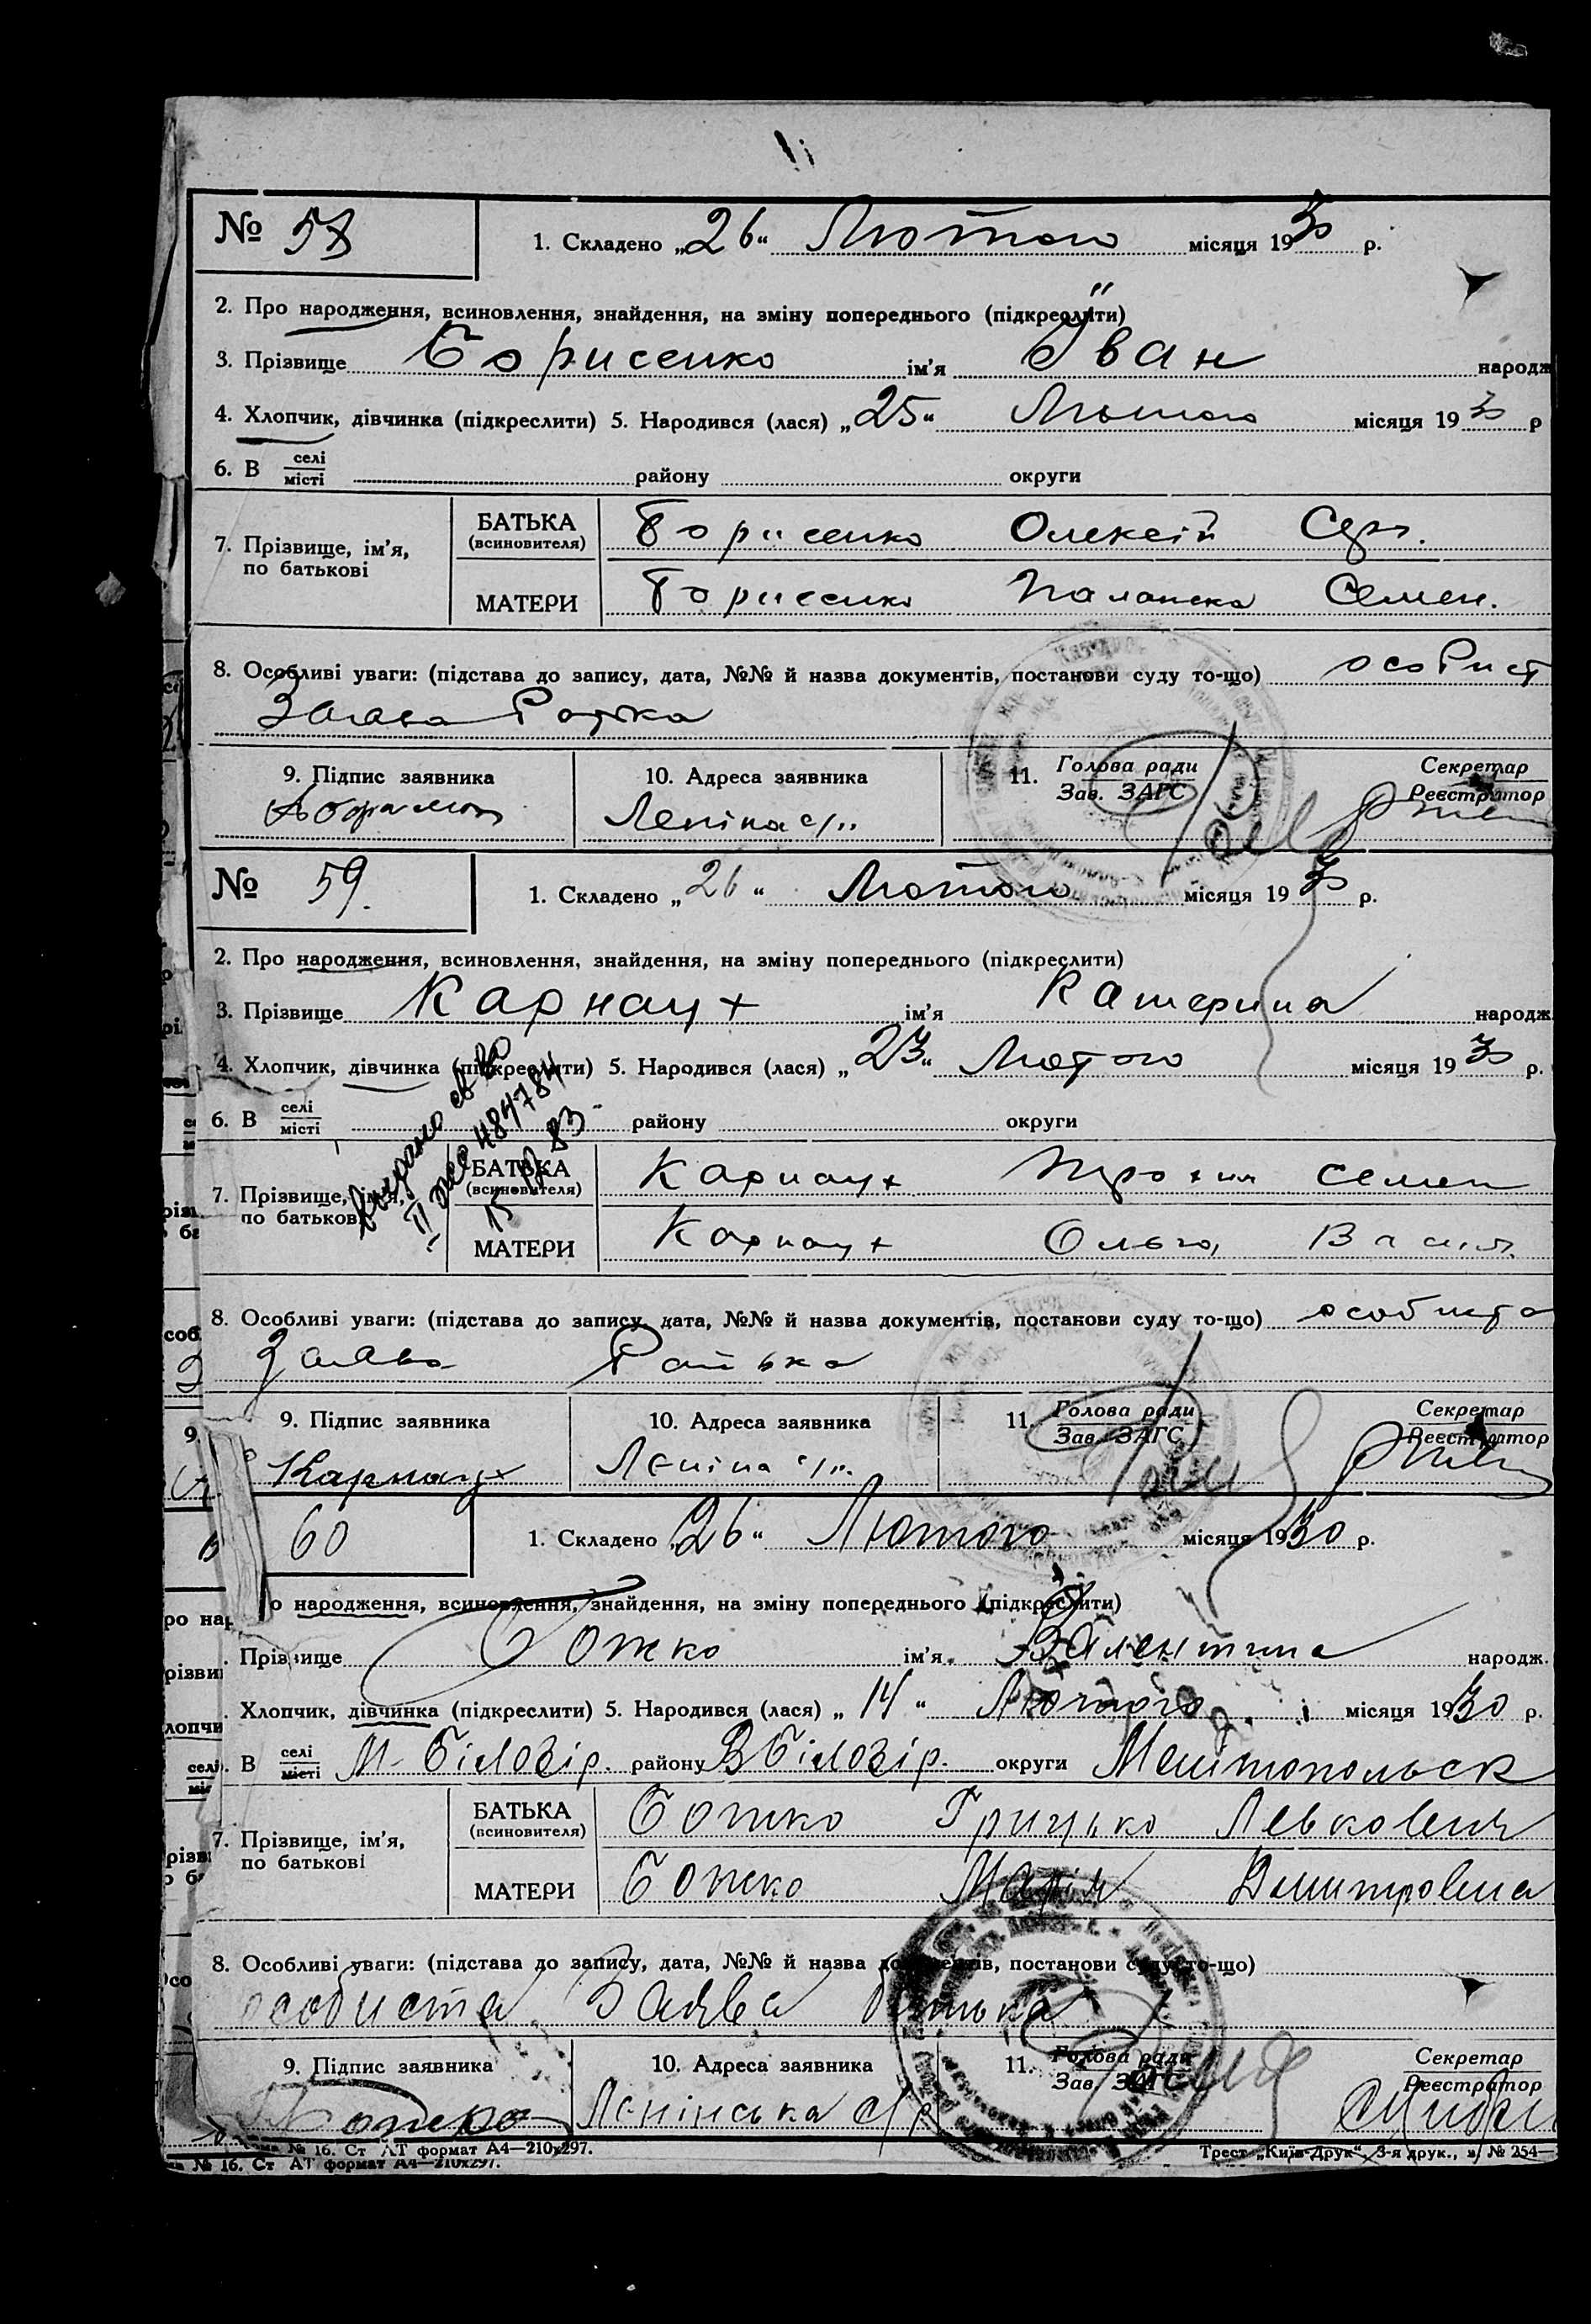 № 58
1. Складено „26“ Лютого місяця 1930 р.
2. Про народження, всиновлення, знайдення, на зміну попереднього (підкреслити)
3. Прізвище Борисенко ім'я Іван народж
4. Хлопчик, дівчинка (підкреслити) 5. Народився (лася) „25“ Лютого місяця 1930 р
6. В селі місті району округи
7. Прізвище, ім'я, по батькові
БАТЬКА (всиновителя) Борисенко Олексій Сер.
МАТЕРИ Борисенко Палажка Семен.
8. Особливі уваги: (підстава до запису, дата, №№ й назва документів, постанови суду то-що) особист
Заява батька
9. Підпис заявника 10. Адреса заявника 11. Голова ради Зав. ЗАГС Секретар Реєстратор
Леніна с/р.
№ 59.
1. Складено „26“ Лютого місяця 1930 р.
2. Про народження, всиновлення, знайдення, на зміну попереднього (підкреслити)
3. Прізвище Карнаух ім'я Катерина народж.
4. Хлопчик, дівчинка (підкреслити) 5. Народився (лася) „23“ Лютого місяця 1930 р.
6. В селі місті району округи
7. Прізвище, ім'я, по батькові
БАТЬКА (всиновителя) Карнаух Трохим Семен
МАТЕРИ Карнаух Ольга Васил.
8. Особливі уваги: (підстава до запису, дата, №№ й назва документів, постанови суду то-що) особиста
Заява батька
9. Підпис заявника 10. Адреса заявника 11. Голова ради Зав. ЗАГС Секретар Реєстратор
Карнаух Леніна с/р.
60
1. Складено „26“ Лютого місяця 1930 р.
о народження, всиновлення, знайдення, на зміну попереднього (підкреслити)
Прізвище Божко ім'я Валентина народж.
Хлопчик, дівчинка (підкреслити) 5. Народився (лася) „14“ Лютого місяця 1930 р.
В селі місті М-Білозір. району В Білозір. округи Мелітопольск
7. Прізвище, ім'я, по батькові
БАТЬКА (всиновителя) Божко Грицько Левкович
МАТЕРИ Божко Марія Дмитровна
8. Особливі уваги: (підстава до запису, дата, №№ й назва документів, постанови суду то-що)
особиста Заява батька
9. Підпис заявника 10. Адреса заявника 11. Голова ради Зав. ЗАГС Секретар Реєстратор
Божко Ленінська с/р
№ 16. Ст АТ формат А4—210х297. Трест „Київ-Друк“, 3-я друк., з. № 254—
№ 16. Ст АТ формат А4—210х297.